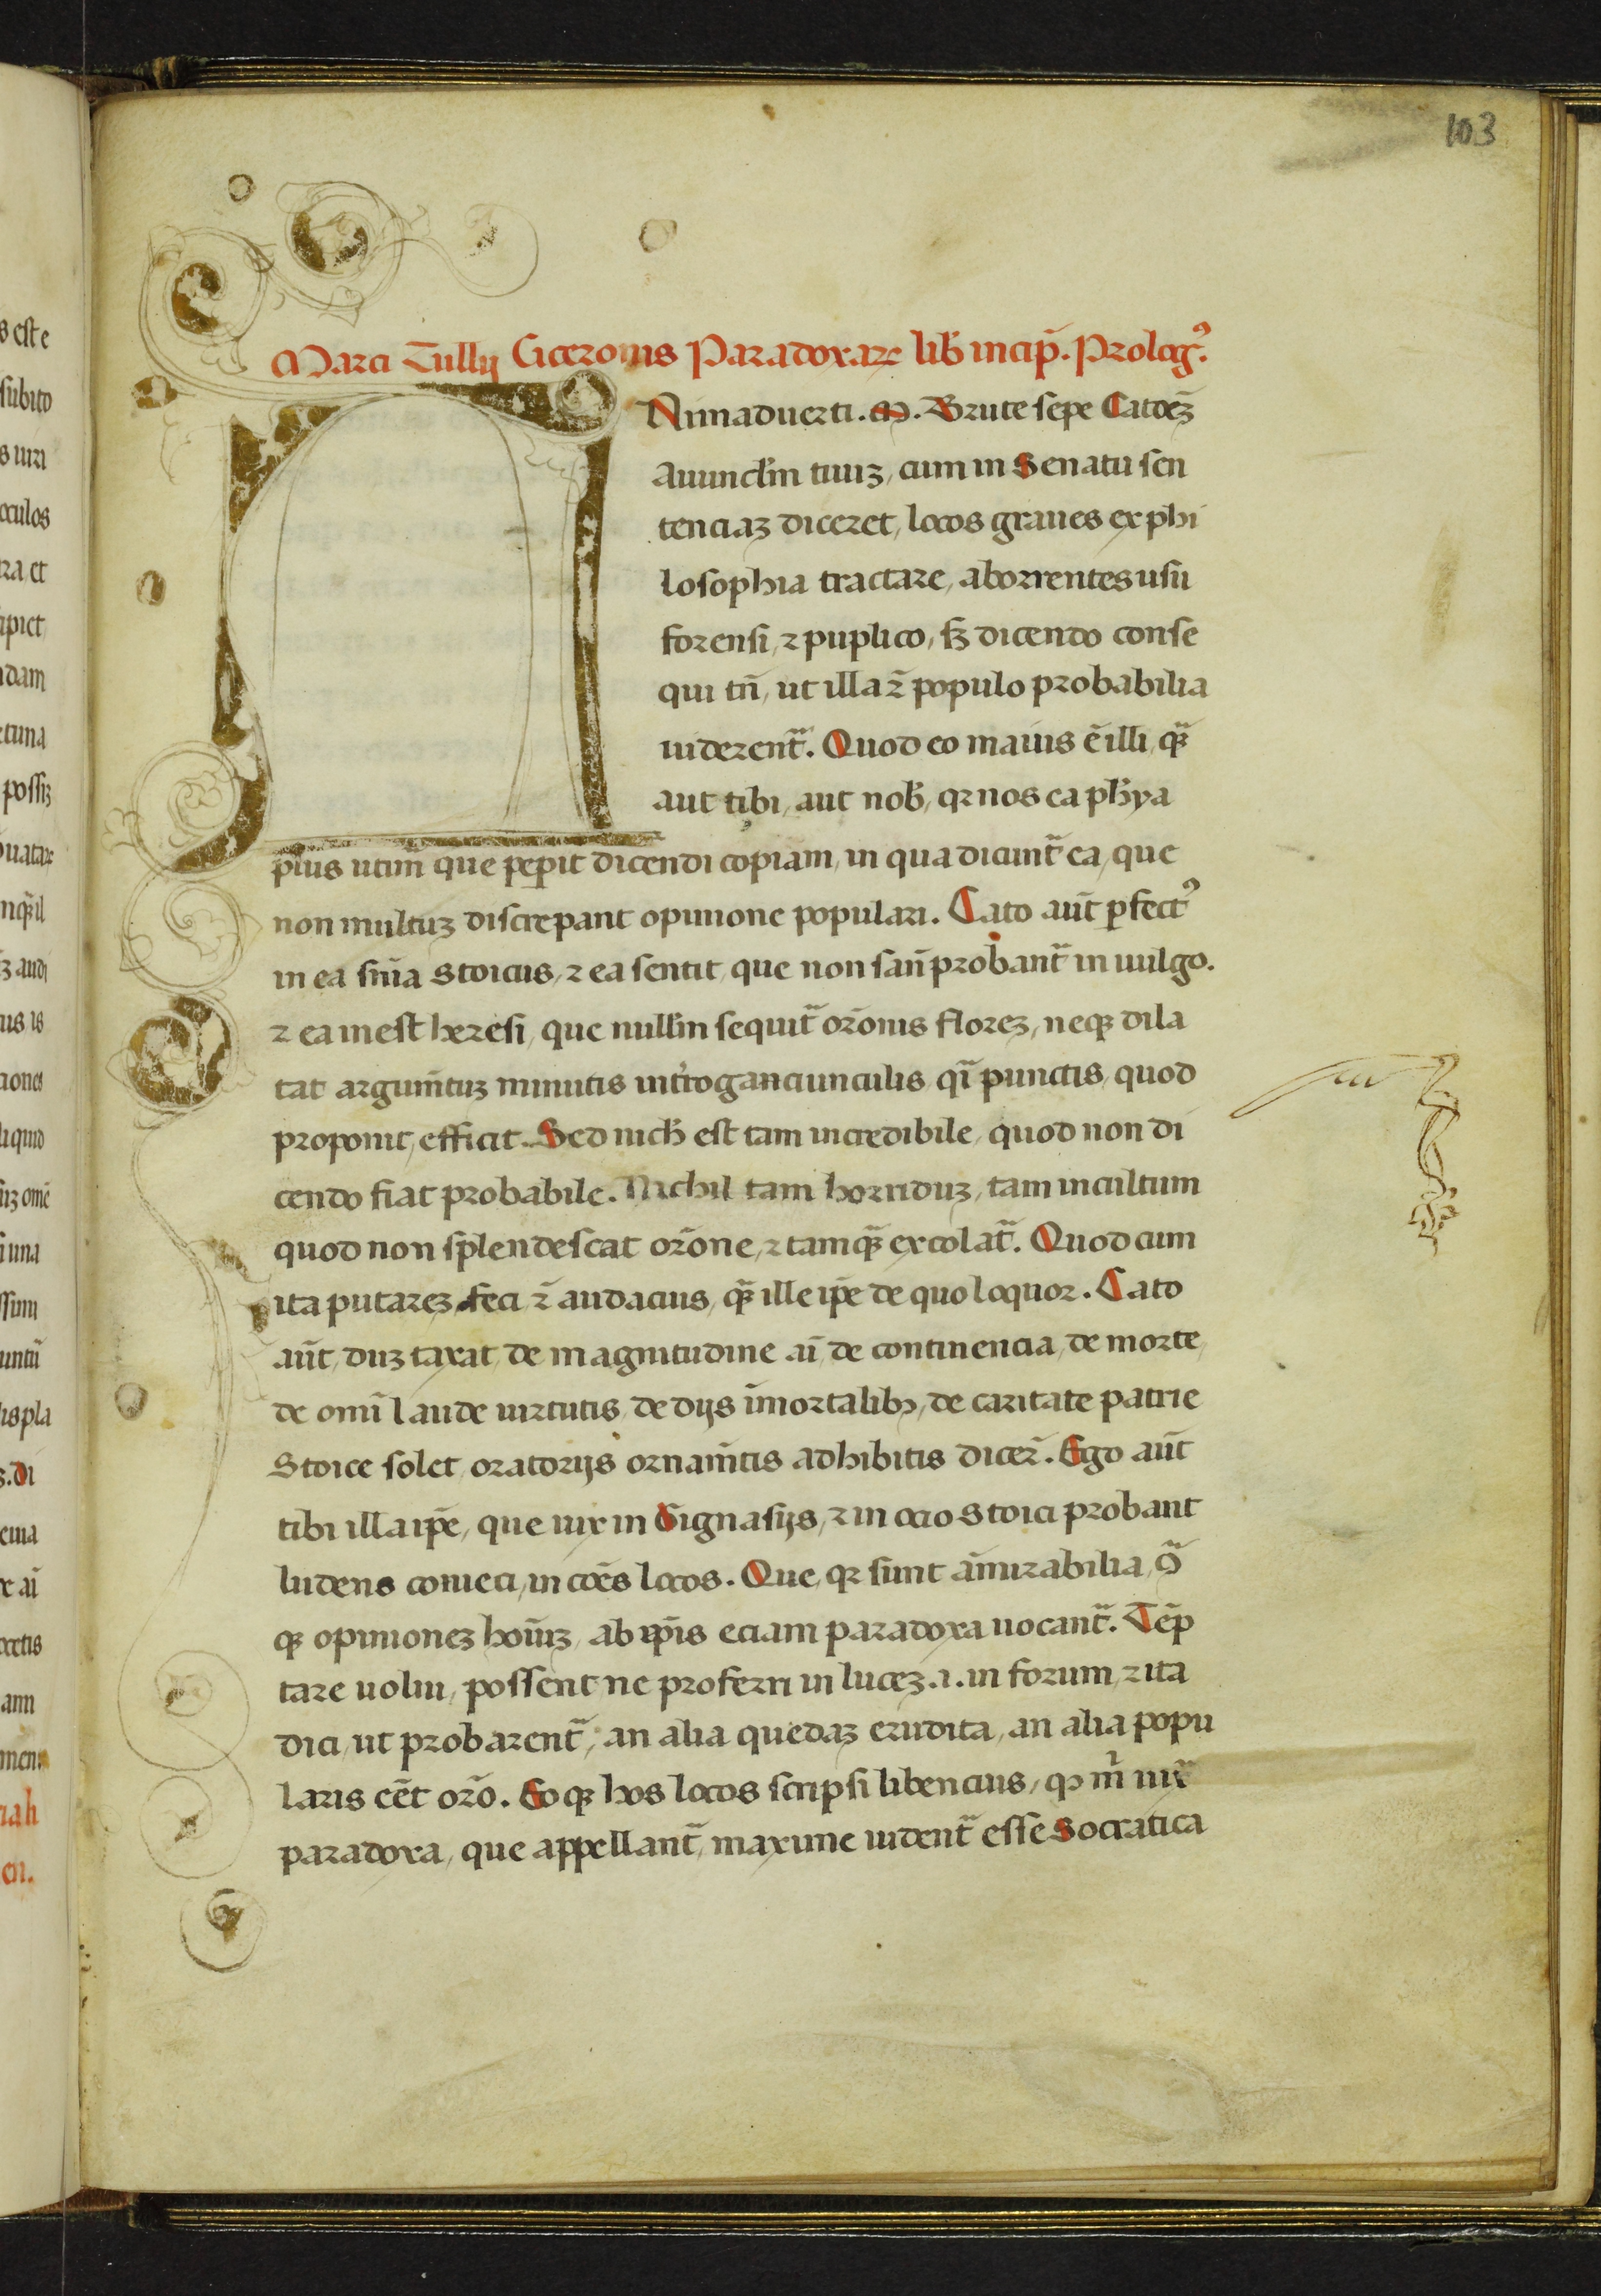 103
Marci Tullij Ciceronis Paradoxaꝝ lib̄ incip̄. Prologꝰ.
ANimaduerti .M. Brute sepe Catōeꝫ
Auunclm̄ tuuꝫ, cum in Senatu sen
tenciaꝫ diceret, locos graues ex phi
losophia tractare, aborrentes usu
forensi, ⁊ puplico, sꝫ dicendo conse
qui tn̄, ut illa ⁊̄ populo probabilia
uiderent᷑. Quod eo maius ē illi, qᷓꝫ
aut tibi, aut nob̄, qꝛ nos ea pħya
plus utim᷑ que pep̄it dicendi copiam, in qua dicunt᷑ ea, que
non multuꝫ discrepant opinione populari. Cato aūt ꝑfectꝰ
in ea sn̄ia Stoicus, ⁊ ea sentit, que non san̄ probant᷑ in uulgo.
⁊ ea in est heresi, que nullm̄ sequit᷑ orōnis floreꝫ, neqꝫ dila
tat argum̄tuꝫ minutis int̄roganciunculis, qͣi punctis, quod
proponit, efficit. Sed nich̄ est tam incredibile, quod non di
cendo fiat probabile. Nichil tam horriduꝫ, tam incultum
quod non splendescat orōne, ⁊ tamqᷓꝫ excolat᷑. Quod cum
ita putareꝫ feci ⁊̄ audacius, qᷓꝫ ille ip̄e de quo loquor. Cato
aūt, duꝫ taxat, de magnitudine aī, de continencia, de morte,
de omī laude uirtutis, de dijs īmortalibꝫ, de caritate patrie
Stoice solet, oratorijs ornam̄tis adhibitis dicer̄. Ego aūt
tibi illa ip̄e, que uix in Gignasijs, ⁊ in ocio Stoici probant
ludens conieci, in cōes locos. Que, qꝛ sunt āmirabilia, 9ͣ
qꝫ opinioneꝫ hoīuꝫ, ab ip̄is eciam paradoxa uocant᷑. Tēp
tare uolui, possent ne proferri in luceꝫ .i. in forum, ⁊ ita
dici, ut probarent᷑, an alia quedaꝫ erudita, an alia popu
laris cēt orō. Eo qꝫ hos locos scripsi libencius, qꝫ m̄ uiͣr
paradoxa, que appellant᷑, maxime uident᷑ esse Socratica